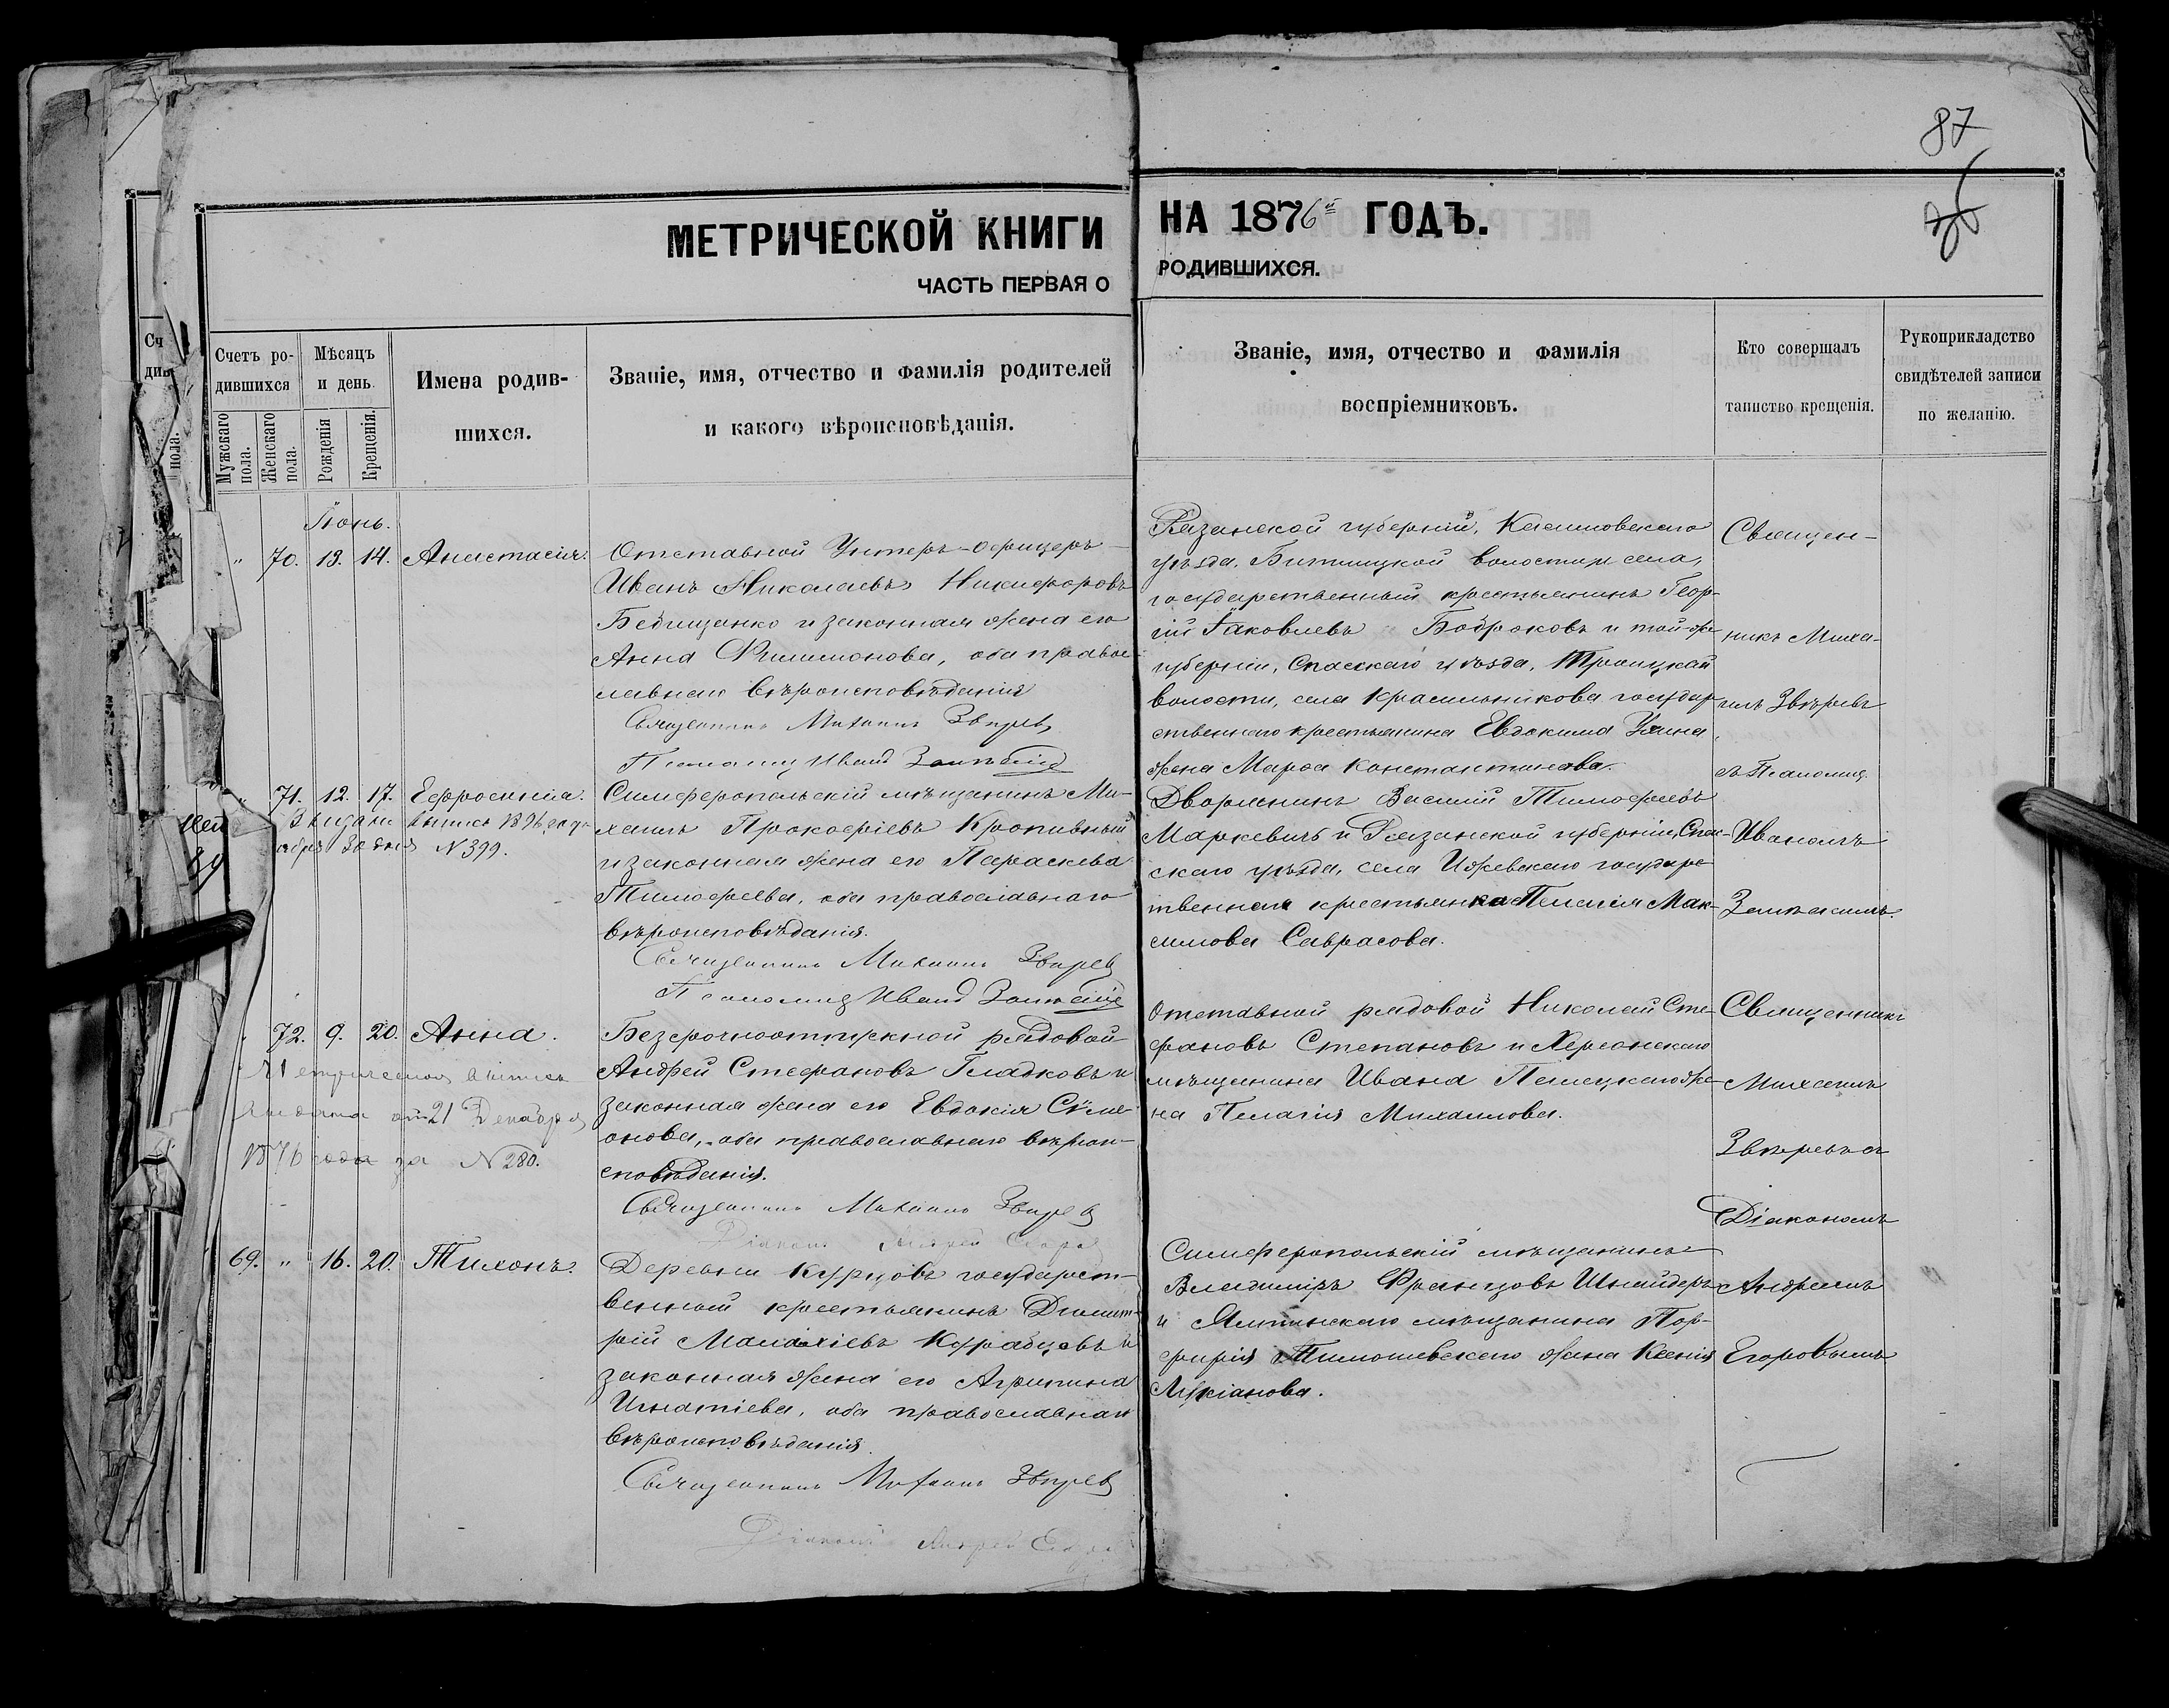 87
МЕТРИЧЕСКОЙ КНИГИ НА 1876й ГОДЪ.
ЧАСТЬ ПЕРВАЯ О РОДИВШИХСЯ.
Счетъ родившихся
Мужскаго пола.
Женскаго пола.
Мѣсяцъ и день
Рожденія
Крещенія.
Имена родившихся.
Званіе, имя, отчество и фамилія родителей
и какого вѣроисповѣданія.
Званіе, имя, отчество и фамилія
воспріемниковъ.
Кто совершалъ
таинство крещенія.
Рукоприкладство
свидѣтелей записи
по желанію.
Іюнь.
" 70. 13. 14. Анастасія.
Отставной Унтеръ-офицеръ
Иванъ Николаевъ Никифоровъ
и законная жена его
Анна Филимонова, оба правос-
лавнаго вѣроисповѣданія
Священникъ Михаилъ Звѣревъ
Псаломщ Иванъ
Рязанской губерніи, Касимовскаго
уѣзда, волости и села,
государственный крестьянинъ Геор-
гій Іаковлевъ Бобраковъ и той-же
губерніи, Спасскаго уѣзда, Троицкой
волости, села Красильникова государ-
ственнаго крестьянина Евдокима
жена Марѳа Константинова.
Священ-
никъ Миха-
илъ Звѣревъ
съ Псаломщ.
Иваномъ
71. 12. 17. Евфросинія.
выпись 1896 года
30 дня N 399.
Симферопольскій мѣщанинъ Ми-
хаилъ Прокофіевъ Кропивный
и законная жена его Параскева
Тимофеева, оба православнаго
вѣроисповѣданія.
Священникъ Михаилъ Звѣревъ
Псаломщ Иванъ
Дворянинъ Василій Тимофеевъ
Маркевичъ и Рязанской губерніи, Спас-
скаго уѣзда, села Ижевскаго государс
твенная крестьянка Пелагія Мак-
симова Саврасова.
72. 9. 20. Анна.
Метрическая выпись
выдана отъ 21 Декабря
1876 года за N 280.
Безсрочноотпускной рядовой
Андрей Стефановъ Гладковъ и
законная жена его Евдокія Сѵме-
онова, оба православнаго вѣрои-
сповѣданія.
Священникъ Михаилъ Звѣревъ
Діаконъ Андрей
Отставной рядовой Николай Сте-
фановъ Степановъ и Херсонскаго
мѣщанина Ивана же-
на Пелагія Михаилова.
Священникъ
Михаилъ
Звѣревъ съ
Діакономъ
Андреемъ
Егоровымъ
69. " 16. 20. Тихонъ.
Деревни Курцовъ государст-
венный крестьянинъ Димит-
рій Малахіевъ и
законная жена его Агрипина
Игнатіева, оба православнаго
вѣроисповѣданія.
Священникъ Михаилъ Звѣревъ
Діаконъ Андрей
Симферопольскій мѣщанинъ
Владиміръ Францовъ Шнайдеръ
и Ялтинскаго мѣщанина Пор-
фирія Тимошевскаго жена Ксенія
Лукіанова.